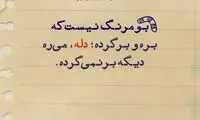 بومرنگ نیست که
بره و برگرده؛ دله، می‌ره
دیگه برنمی‌گرده.